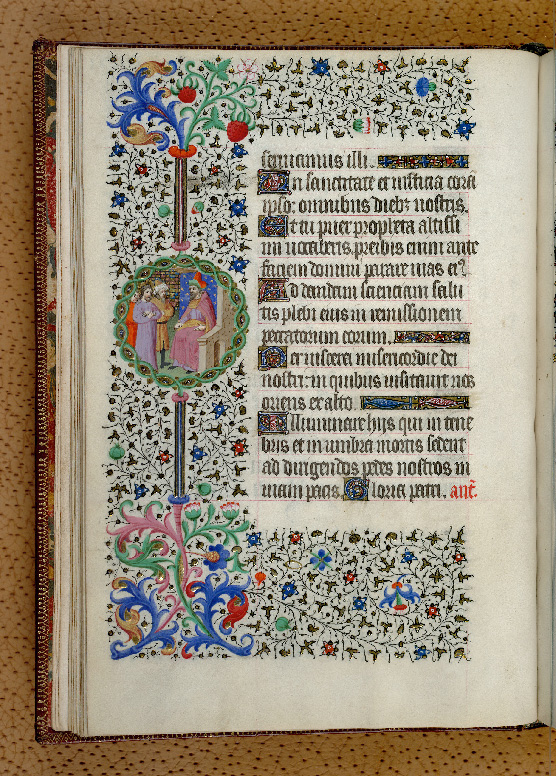 seruiamus illi.
In sanctitate et iusticia cora
ipso: omnibus diebus nostris.
Et tu puer propheta altissi
mi uocaberis: preibis enim ante
faciem domini parare uias eius.
Ad dandam scienciam salu
tis plebi eius: in remissionem
peccatorum eorum.
Per uiscera misericordie dei
nostri: in quibus uisitauit nos
oriens ex alto.
Illuminare hijs qui in tene
bris et in umbra mortis sedent
ad dirigendos pedes nostros in
uiam pacis. Gloria patri. ant.